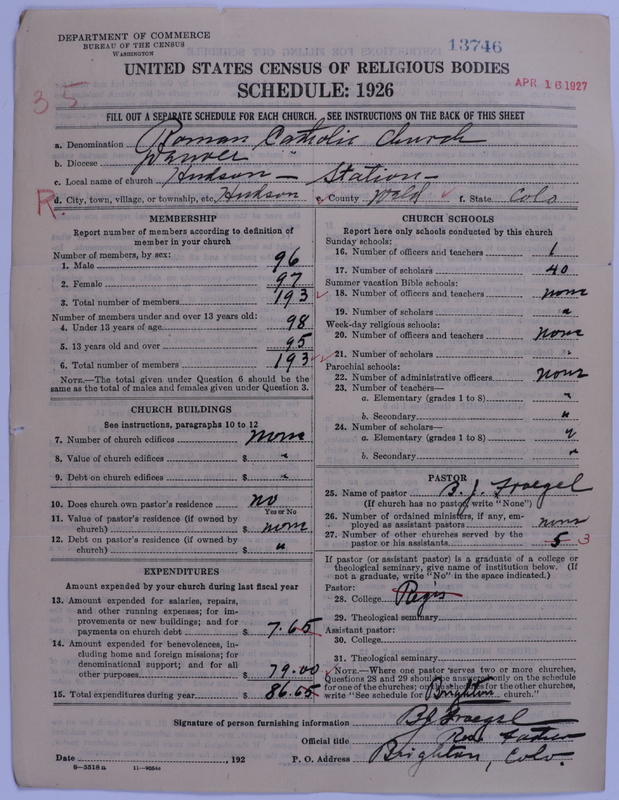 DEPARTMENT OF COMMERCE
BUREAU OF THE CENSUS
WASHINGTON
13746
UNITED STATES CENSUS OF RELIGIOUS BODIES
APR 16 1927
SCHEDULE: 1926
35
FILL OUT A SEPARATE SCHEDULE FOR EACH CHURCH. SEE INSTRUCTIONS ON THE BACK OF THIS SHEET
a. Denomination Roman Catholic Church
b. Diocese Denver "
c. Local name of church Hudson - Station -
R. d. City, town, village, or township, etc. Hudson e. County Weld f. State Colo
MEMBERSHIP
Report number of members according to definition of
member in your church
Number of members, by sex:
1. Male 96
2. Female 97
3. Total number of members 193
Number of members under and over 13 years old:
4. Under 13 years of age 98
5. 13 years old and over 95
6. Total number of members 193
NOTE.—The total given under Question 6 should be the
same as the total of males and females given under Question 3.
CHURCH BUILDINGS
See instructions, paragraphs 10 to 12
7. Number of church edifices none
8. Value of church edifices $ "
9. Debt on church edifices $ "
10. Does church own pastor's residence no
Yes or No
11. Value of pastor's residence (if owned by
church) $ none
12. Debt on pastor's residence (if owned by
church) $ "
EXPENDITURES
Amount expended by your church during last fiscal year
13. Amount expended for salaries, repairs,
and other running expenses; for im-
provements or new buildings; and for
payments on church debt $ 7.65
14. Amount expended for benevolences, in-
cluding home and foreign missions; for
denominational support; and for all
other purposes $ 79.00
15. Total expenditures during year $ 86.65
CHURCH SCHOOLS
Report here only schools conducted by this church
Sunday schools:
16. Number of officers and teachers 1
17. Number of scholars 40
Summer vacation Bible schools:
18. Number of officers and teachers none
19. Number of scholars "
Week-day religious schools:
20. Number of officers and teachers none
21. Number of scholars "
Parochial schools:
22. Number of administrative officers none
23. Number of teachers—
a. Elementary (grades 1 to 8) "
b. Secondary "
24. Number of scholars—
a. Elementary (grades 1 to 8) "
b. Secondary "
PASTOR
25. Name of pastor B. J. Fraegel
(If church has no pastor, write "None")
26. Number of ordained ministers, if any, em-
ployed as assistant pastors none
27. Number of other churches served by the
pastor or his assistants 5 3
If pastor (or assistant pastor) is a graduate of a college or
theological seminary, give name of institution below. (If
not a graduate, write "No" in the space indicated.)
Pastor:
28. College Regis
29. Theological seminary
Assistant pastor:
30. College
31. Theological seminary
NOTE.—Where one pastor serves two or more churches,
Questions 28 and 29 should be answered only on the schedule
for one of the churches; on the schedules for the other churches,
write "See schedule for Brighton church."
Signature of person furnishing information BJ Fraegel
Official title Rev. Father
Date , 192 P. O. Address Brighton, Colo.
8—5518a 11—9054c